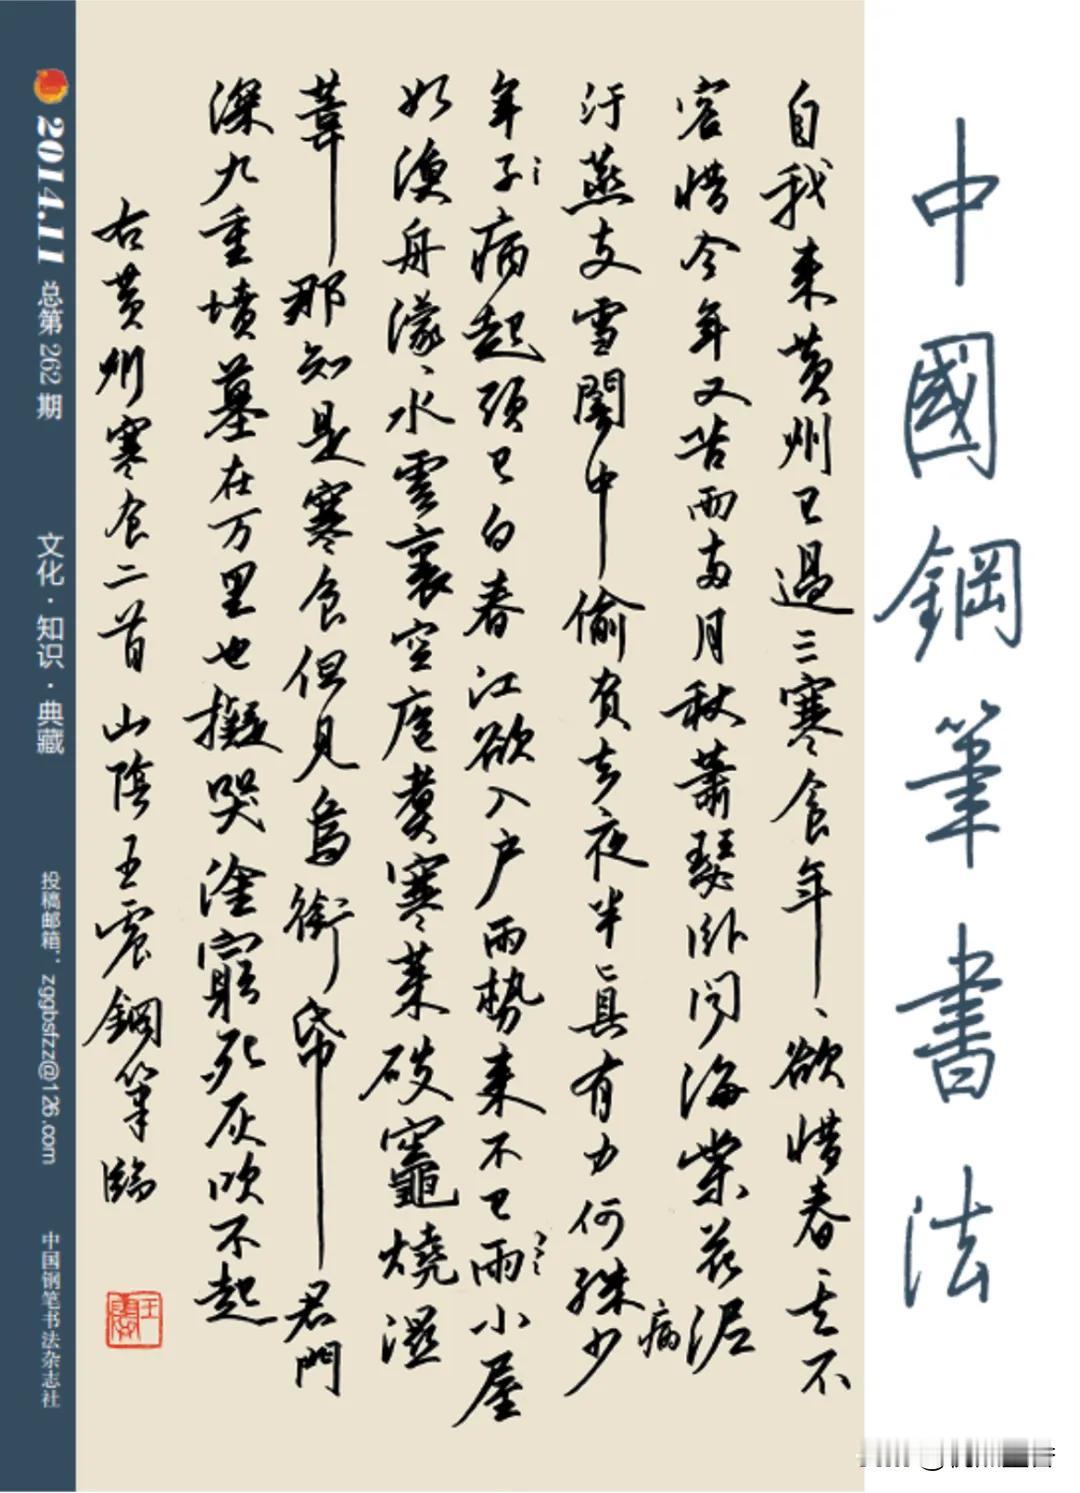 中國鋼筆書法
自我来黄州已過三寒食年、欲惜春、去不
容惜今年又苦雨兩月秋蕭瑟卧闻海棠花泥
汙燕支雪闇中偷負去夜半真有力何殊少
病
年子病起頭已白春江欲入户雨势来不已雨小屋
如漁舟濛、水雲裏空庖煮寒菜破竈燒濕
葦那知是寒食但見烏銜帋君門
深九重墳墓在万里也擬哭塗窮死灰吹不起
右黄州寒食二首 山陰王震鋼筆臨
2014.11 总第262期
文化·知识·典藏
投稿邮箱：zggbsfzz@126.com
中国钢笔书法杂志社